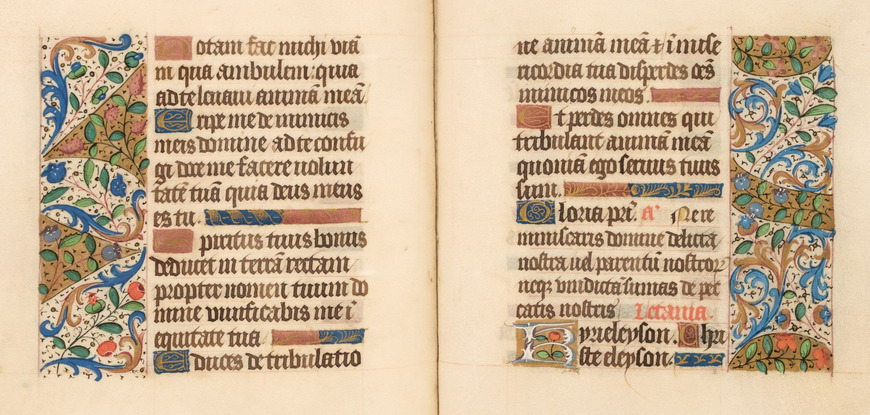 Notam fac michi viā
in qua ambulem: quia
ad te levavi animā meā.
Eripe me de inimicis
meis domine ad te confu
gi doce me facere volun
tatē tuā quia deus meus
es tu.
Spiritus tuus bonus
deducet in terrā rectam
propter nomen tuum do
mine vivificabis me ī
equitate tua.
Educes de tribulatio
ne animā meā & ī mise
ricordia tua disperdes oēs
inimicos meos.
Et perdes omnes qui
tribulant animā meā
quoniam ego servus tuus
sum.
Gloria pri. a Nere
miniscaris domine delicta
nostra vel parentū nostroꝝ
neqꝫ vindictā sumas de pec
catis nostris Letania.
Kyrieleyson. Chri
ste eleyson.